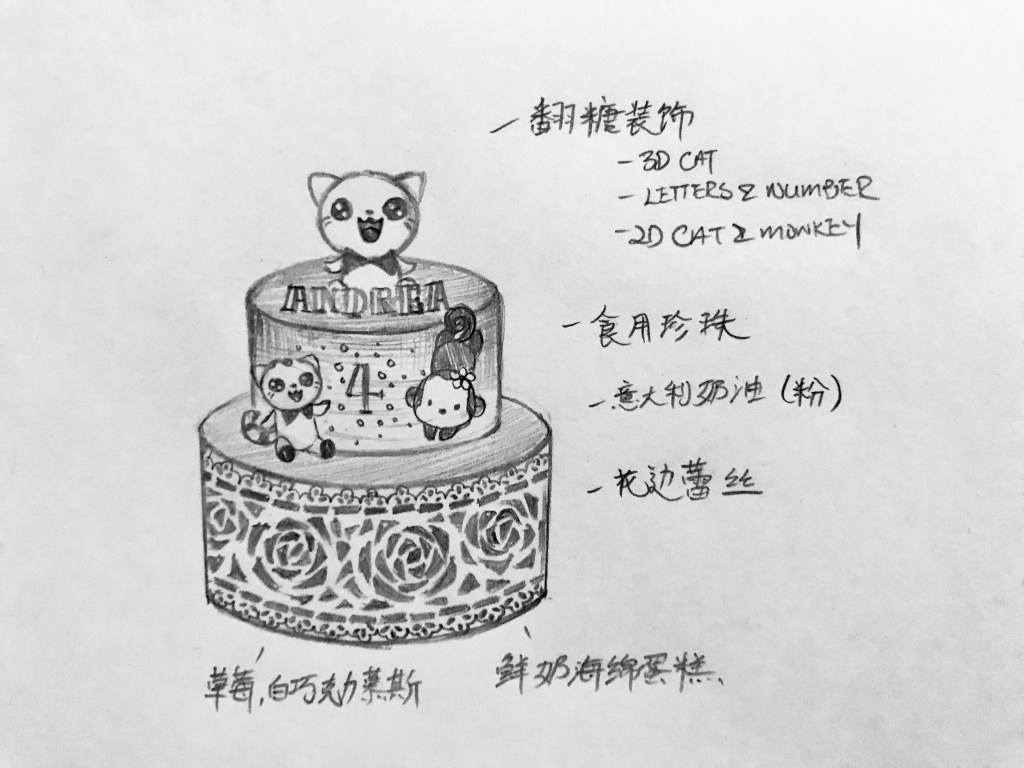 - 翻糖装饰
- 3D CAT
- LETTERS & NUMBER
- 2D CAT & MONKEY
ANDREA
- 食用珍珠
4
- 意大利奶油（粉）
- 花边蕾丝
草莓,白巧克力慕斯
鲜奶海绵蛋糕